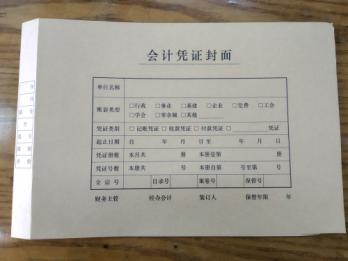 会计凭证封面
单位名称
账套类型 □行政 □事业 □基建 □企业 □党费 □工会
□学会 □零余额 □其他
凭证类别 □记账凭证 □收款凭证 □付款凭证 □ 凭证
起止日期 自 年 月 日至 年 月 日
凭证册数 本月共 册 本册是第 册
凭证号数 本册共 号 本册自第 号至第 号
全宗号 目录号 案卷号 保管号
财务主管 经办会计 装订人 保管年限 年